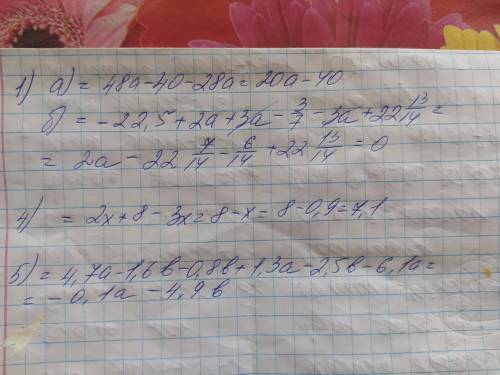 1) а) = 48а-40-28а=20а-40
б) = -22,5+2а+3а-3/7-3а+22 13/14=
= 2а-22 7/14-6/14+22 13/14=0
4) = 2х+8-3х=8-х=8-0,9=7,1
5) = 4,7а-1,6в-0,8в+1,3а-2,5в-6,1а=
= -0,1а-4,9в